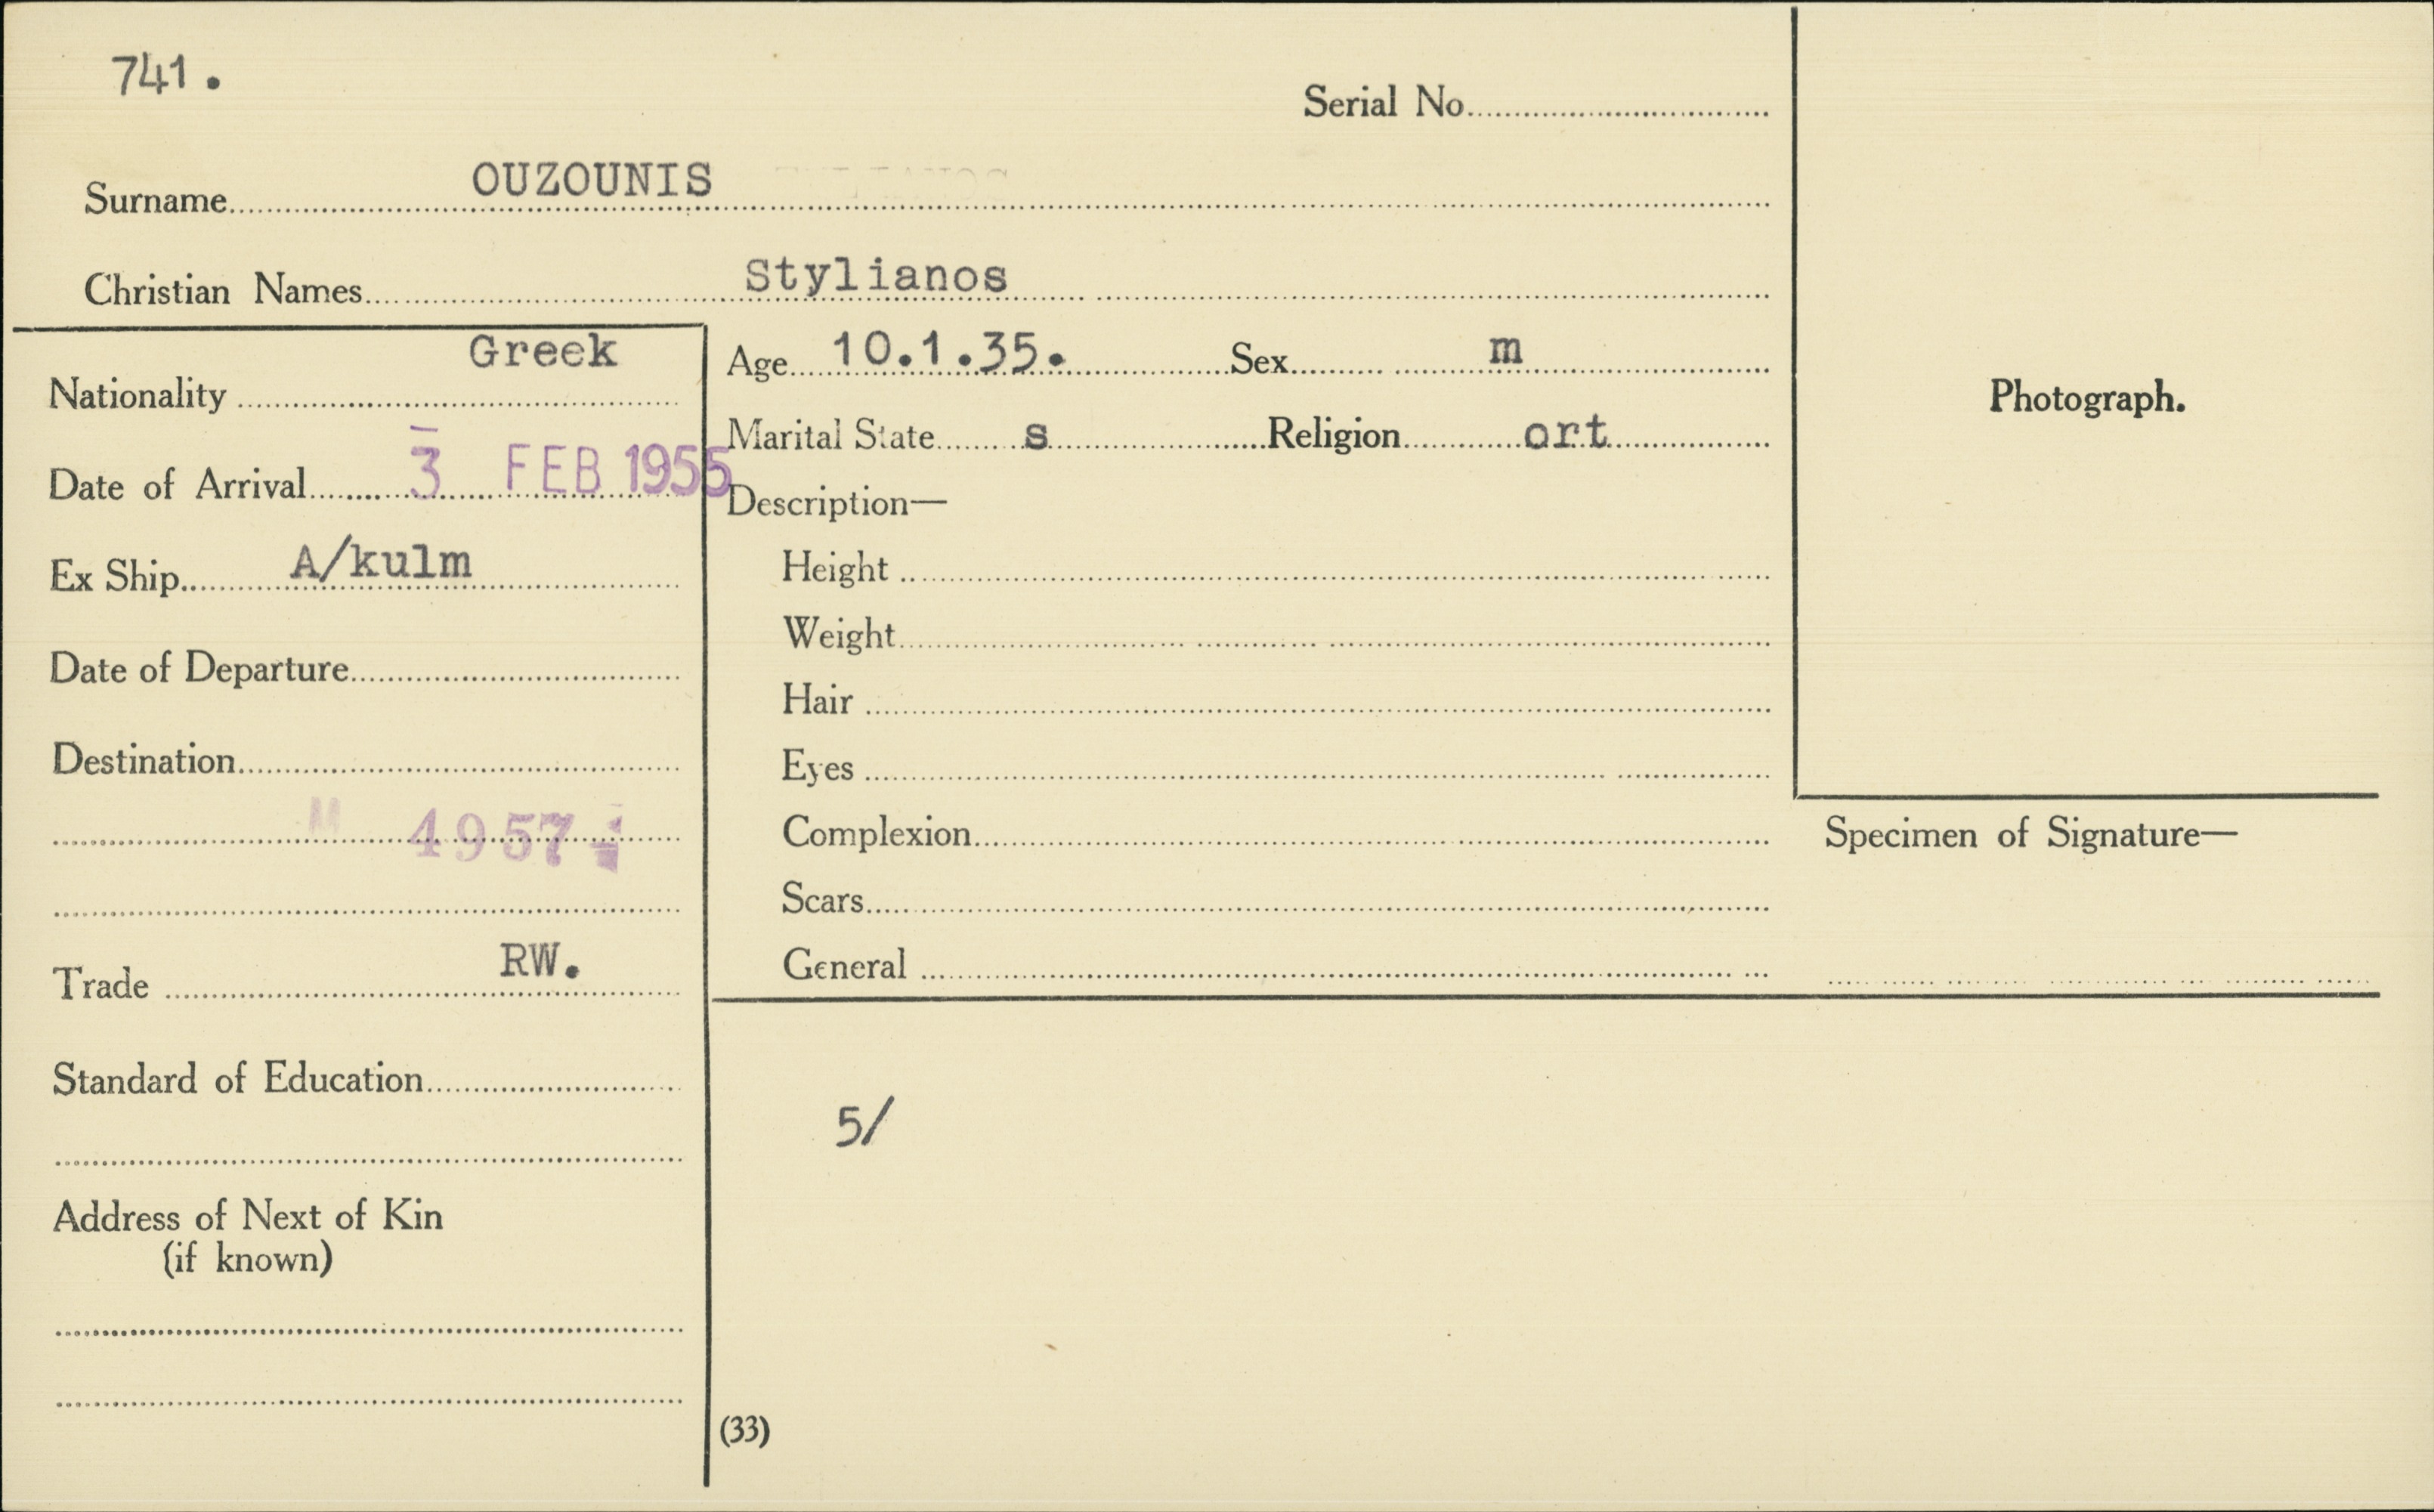 741.
Serial No
Surname OUZOUNIS
Christian Names Stylianos
Nationality Greek
Date of Arrival 3 FEB 1955
Ex Ship A/kulm
Date of Departure
Destination
M 4957
Trade RW.
Standard of Education
Address of Next of Kin
(if known)
Age 10.1.35. Sex m
Marital State s Religion ort
Description—
Height
Weight
Hair
Eyes
Complexion
Scars
General
5/
(33)
Photograph.
Specimen of Signature—